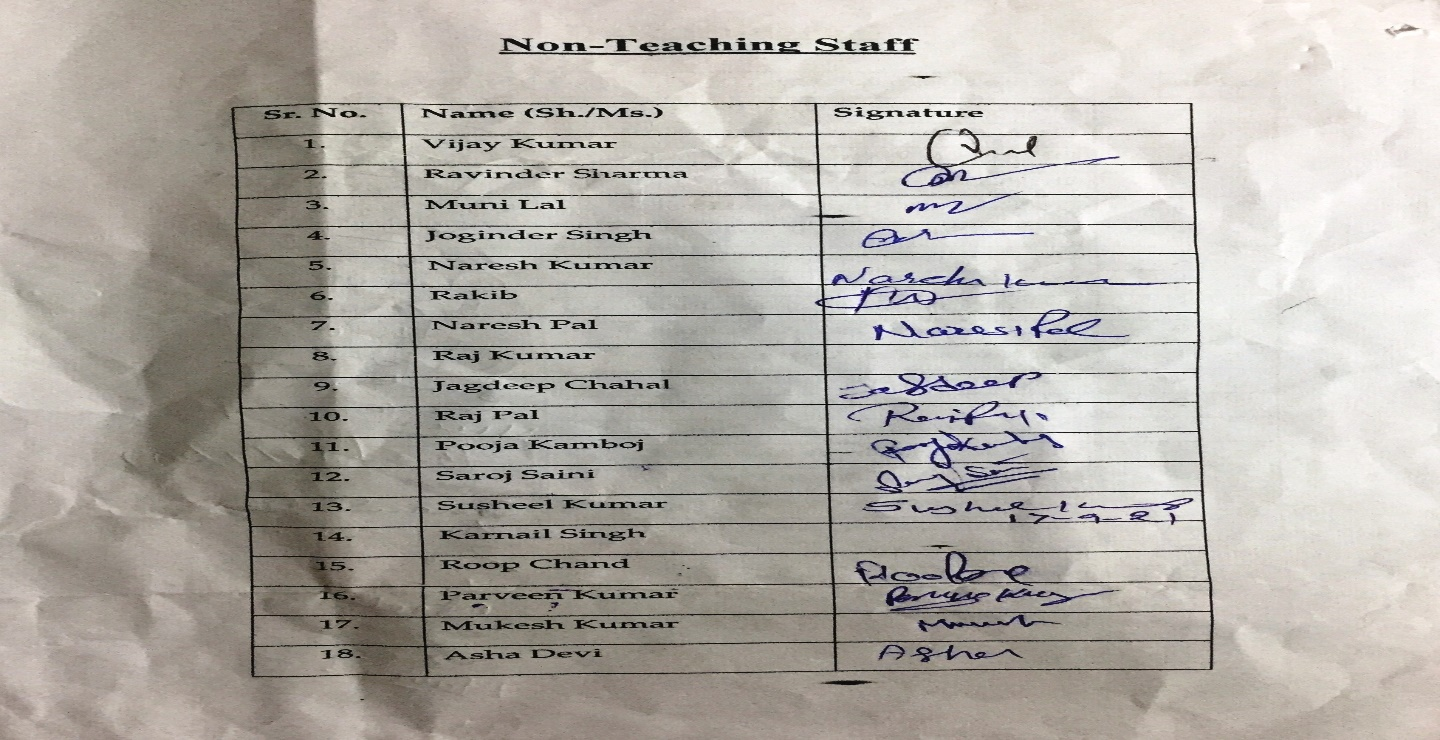 Non-Teaching Staff
Sr. No. Name (Sh./Ms.) Signature
1. Vijay Kumar
2. Ravinder Sharma
3. Muni Lal
4. Joginder Singh
5. Naresh Kumar Naresh Kumar
6. Rakib
7. Naresh Pal Naresh Pal
8. Raj Kumar
9. Jagdeep Chahal Jagdeep
10. Raj Pal
11. Pooja Kamboj
12. Saroj Saini
13. Susheel Kumar Susheel Kumar
17-9-21
14. Karnail Singh
15. Roop Chand
16. Parveen Kumar
17. Mukesh Kumar
18. Asha Devi Asha